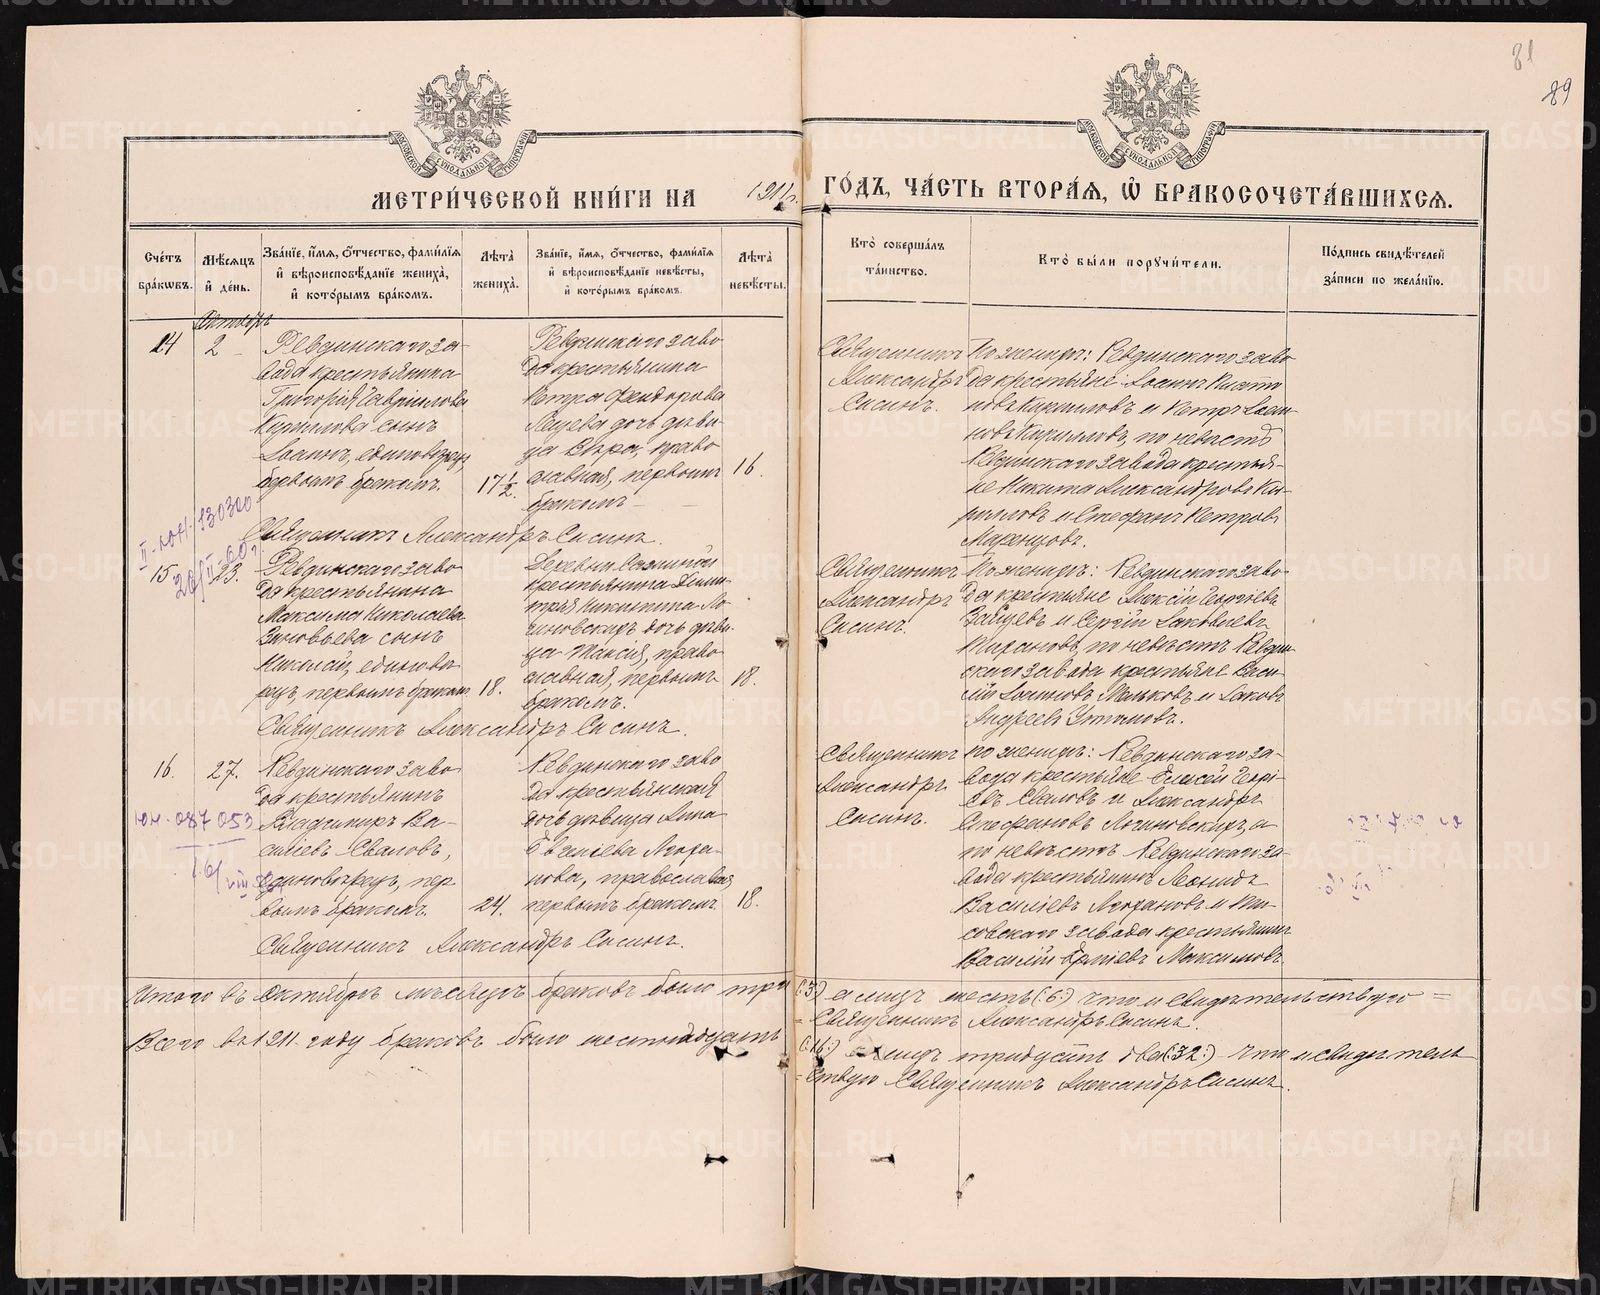 81
89
МЕТРИ́ЧЕСКОЙ КНИ́ГИ НА 1911 г. ГО́ДЪ, ЧА́СТЬ ВТОРА́Я, Ѡ҆ БРАКОСОЧЕТА́ВШИХСЯ.
Сче́тъ бра́кѡвъ.
Мѣ́сяцъ и҆ де́нь.
Зва́нїе, и҆́мя, ѻ҆́тчество, фами́лїя
и҆ вѣроисповѣ́данїе жениха̀,
и҆ кото́рымъ бра́комъ.
Лѣта̀ жениха̀.
Зва́нїе, и҆́мя, ѻ҆́тчество, фами́лїя
и҆ вѣроисповѣ́данїе невѣ́сты,
и҆ кото́рымъ бра́комъ.
Лѣта̀ невѣ́сты.
Кто̀ соверша́лъ
та́инство.
Кто̀ бы́ли порꙋчи́тели.
По́дпись свидѣ́телей
за́писи по жела́нїю.
Октябрь
14
2
Ревдинскаго за-
вода крестьянина
Григорія Гавриилова
Кирилова сынъ
Іоаннъ, единовѣрецъ,
первымъ бракомъ.
17½.
Ревдинскаго заво
да крестьянина
Петра Феодорова
дочь дѣви-
ца Вѣра, право
славная, первымъ
бракомъ
16.
Священникъ
Александръ
Сисинъ.
По женихѣ: Ревдинскаго заво
да крестьяне Іоаннъ
новъ Кирилловъ и Петръ Іоан-
новъ Кирилловъ, по невѣстѣ
Ревдинскаго завода крестья-
не Никита Александровъ Ки-
рилловъ и Стефанъ Петровъ
Маренцовъ.
Священникъ Александръ Сисинъ.
130300
15.
23.
Ревдинскаго заво
да крестьянина
Максима Николаева
Зиновьева сынъ
Николай, единовѣ
рецъ, первымъ бракомъ
18.
Деревни
крестьянина Дими-
трія Никитина Ло
гиновскихъ дочь дѣви-
ца Таисія, право
славная, первымъ
бракомъ.
18.
Священникъ
Александръ
Сисинъ.
По женихѣ: Ревдинскаго заво
да крестьяне Алексій Георгіевъ
Зайцевъ и Сергій Іаковлевъ
по невѣстѣ Ревдин-
скаго завода крестьяне Васи-
лій Іоанновъ Мальковъ и Іаковъ
Андреевъ
Священникъ Александръ Сисинъ.
16.
27.
Ревдинскаго заво
да крестьянинъ
Владимиръ Ва-
силіевъ Сваловъ,
единовѣрецъ, пер
вымъ бракомъ.
24.
Ревдинскаго заво
да крестьянская
дочь дѣвица Анна
нова, православная
первымъ бракомъ
18.
Священникъ
Александръ
Сисинъ.
По женихѣ: Ревдинскаго за-
вода крестьяне Елисей Георгі-
евъ Сваловъ и Александръ
Стефановъ Логиновскихъ, а
по невѣстѣ Ревдинскаго за-
вода крестьянинъ Леонидъ
Василіевъ
совскаго завода крестьянинъ
Василій Максимовъ
Священникъ Александръ Сисинъ.
087 053
Итого въ Октябрѣ мѣсяцѣ браковъ было три (:3:) а лицъ шесть (:6:) что и свидѣтельствую =
Священникъ Александръ Сисинъ.
Всего въ 1911 году браковъ было шестнадцать (:16:) а лицъ тридцать два (:32:) что и свидѣтель
= ствую Священникъ Александръ Сисинъ.